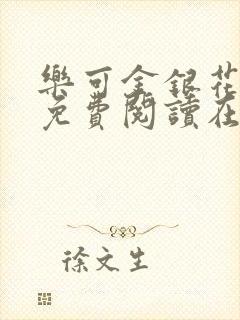 樂可金銀花
免費閱讀在
徐文生